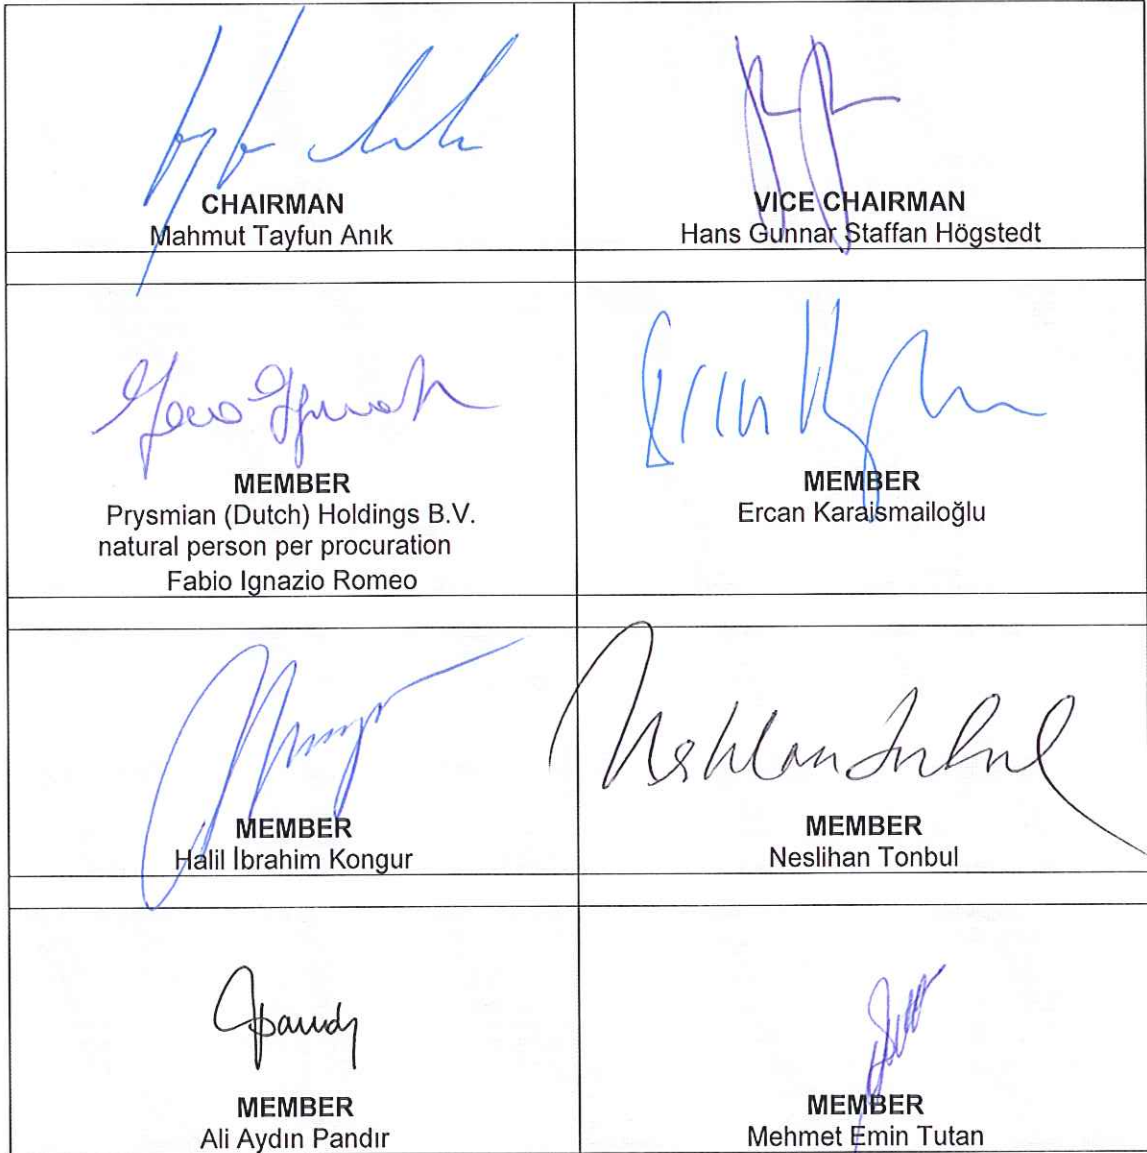 CHAIRMAN
Mahmut Tayfun Anık
VICE CHAIRMAN
Hans Gunnar Staffan Högstedt
MEMBER
Prysmian (Dutch) Holdings B.V.
natural person per procuration
Fabio Ignazio Romeo
Ercan K
MEMBER
Ercan Karaismailoğlu
MEMBER
Halil İbrahim Kongur
Neslihan Tonbul
MEMBER
Neslihan Tonbul
MEMBER
Ali Aydın Pandır
MEMBER
Mehmet Emin Tutan